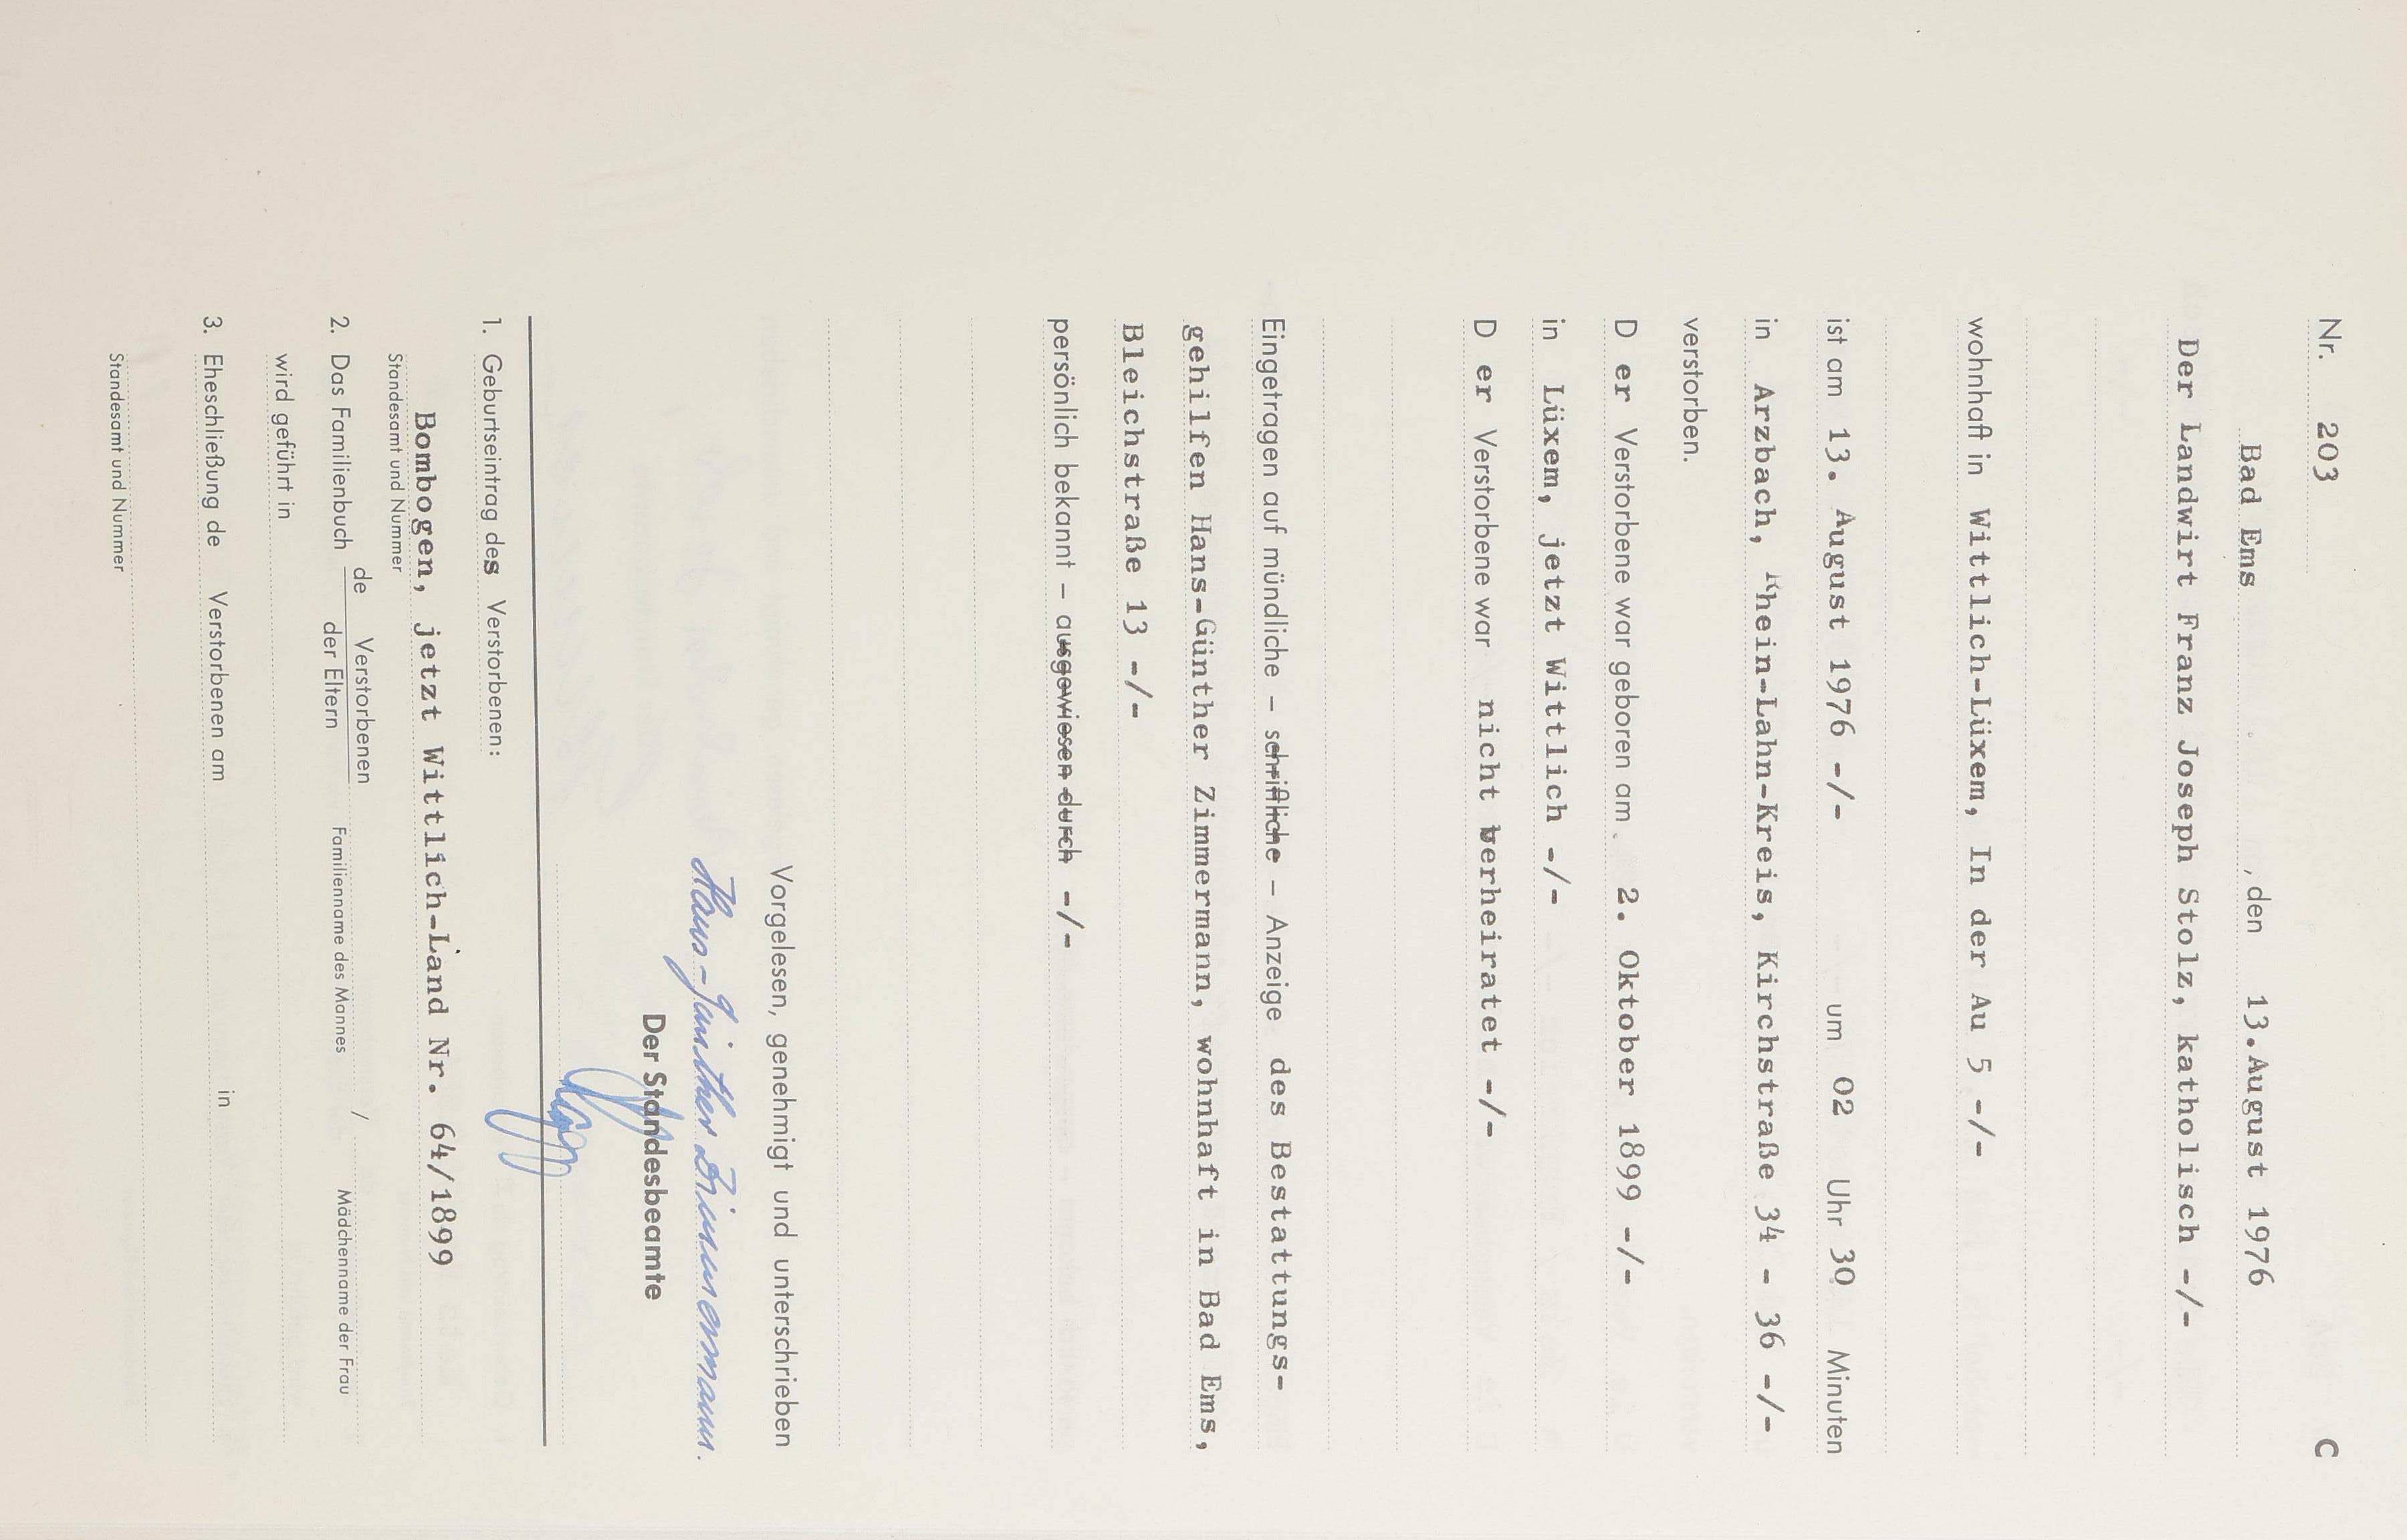 Nr. 203 C
Bad Ems , den 13.August 1976
Der Landwirt Franz Joseph Stolz, katholisch -/-
wohnhaft in Wittlich-Lüxem, In der Au 5 -/-
ist am 13. August 1976 -/- um 02 Uhr 30 Minuten
in Arzbach, Rhein-Lahn-Kreis, Kirchstraße 34 - 36 -/-
verstorben.
D er Verstorbene war geboren am 2. Oktober 1899 -/-
in Lüxem, jetzt Wittlich -/-
D er Verstorbene war nicht verheiratet -/-
Eingetragen auf mündliche – schriftliche – Anzeige des Bestattungs-
gehilfen Hans-Günther Zimmermann, wohnhaft in Bad Ems,
Bleichstraße 13 -/-
persönlich bekannt – ausgewiesen durch -/-
Vorgelesen, genehmigt und unterschrieben
Hans-Günther Zimmermann.
Der Standesbeamte
1. Geburtseintrag des Verstorbenen:
Bombogen, jetzt Wittlich-Land Nr. 64/1899
Standesamt und Nummer
2. Das Familienbuch de Verstorbenen /
der Eltern Familienname des Mannes Mädchenname der Frau
wird geführt in
3. Eheschließung de Verstorbenen am in
Standesamt und Nummer